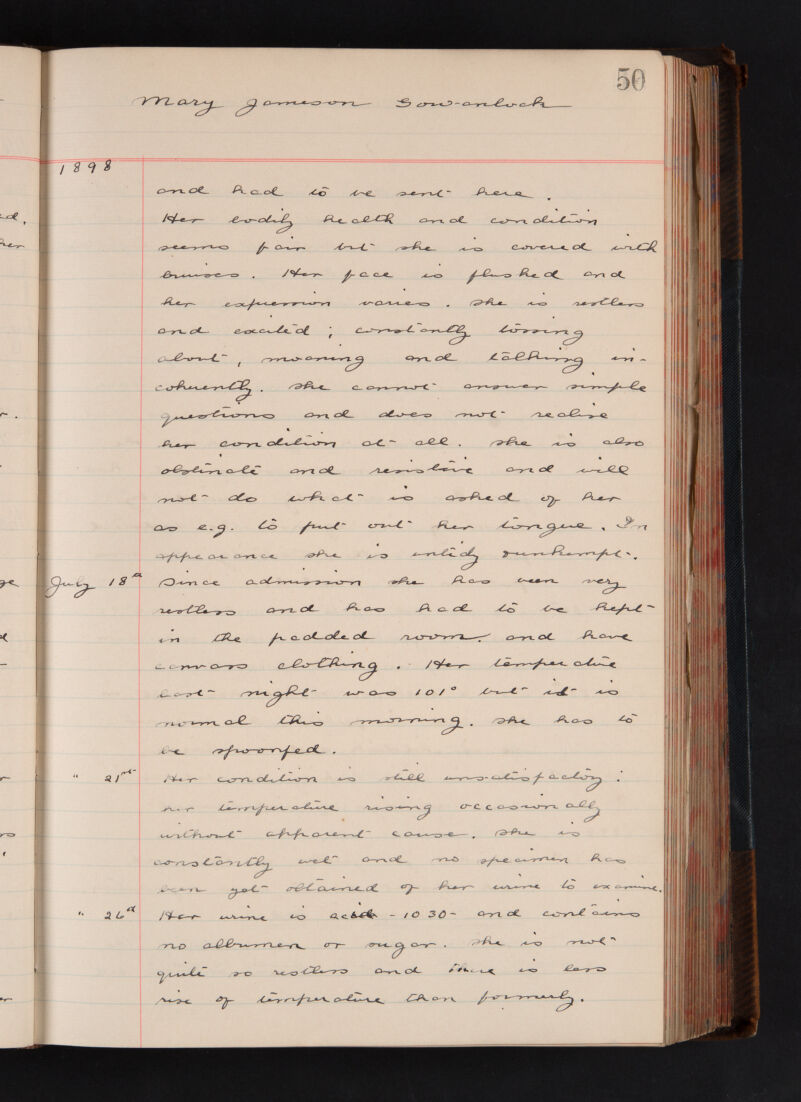 50
Mary Jameson Gow-anlock
1898
and had to be sent here.
Her bodily health and condition
seems fair but she is covered with
bruises. Her face is flushed and
her expression varies. She is restless
and excited; constantly tossing
about, moaning and talking in-
coherently. She cannot answer simple
questions and does not realise
her condition at all. She is also
obstinate and resistive and will
not do what is asked of her
as e.g. to put out her tongue. In
appearance she is untidy & unkempt.
July 18th Since admission she has been very
restless and has had to be kept
in the padded room and have
canvass clothing. Her temperature
last night was 101° but it is
normal this morning. She has to
be spoonfed.
" 21st Her condition is still unsatisfactory:
her temperature rising occasionally
without apparent cause. She is
constantly wet and no specimen has
been yet obtained of her urine to examine.
" 26th Her urine is acid - 1030 - and contains
no albumen or sugar. She is not
quite so restless and there is less
rise of temperature than formerly.